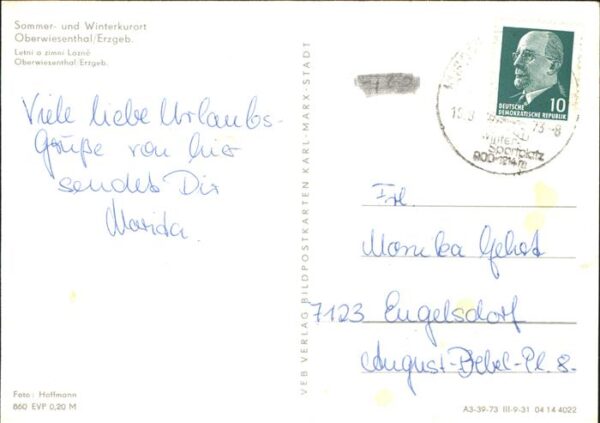 Sommer- und Winterkurort
Oberwiesenthal/Erzgeb.
Letni a zimni Lazně
Oberwiesenthal Erzgeb.
Viele liebe Urlaubs-
Grüße von hier
sendet Dir
Marida.
Foto: Hoffmann
860 EVP 0,20 M
VEB VERLAG BILDPOSTKARTEN KARL-MARX-STADT
10
DEUTSCHE
DEMOKRATISCHE REPUBLIK
73-8
Winter
Sportplatz
900-1214m
Frl.
Monika Gehst
7123 Engelsdorf
August-Bebel-Pl. 8.
A3-39-73 III-9-31 04 14 4022